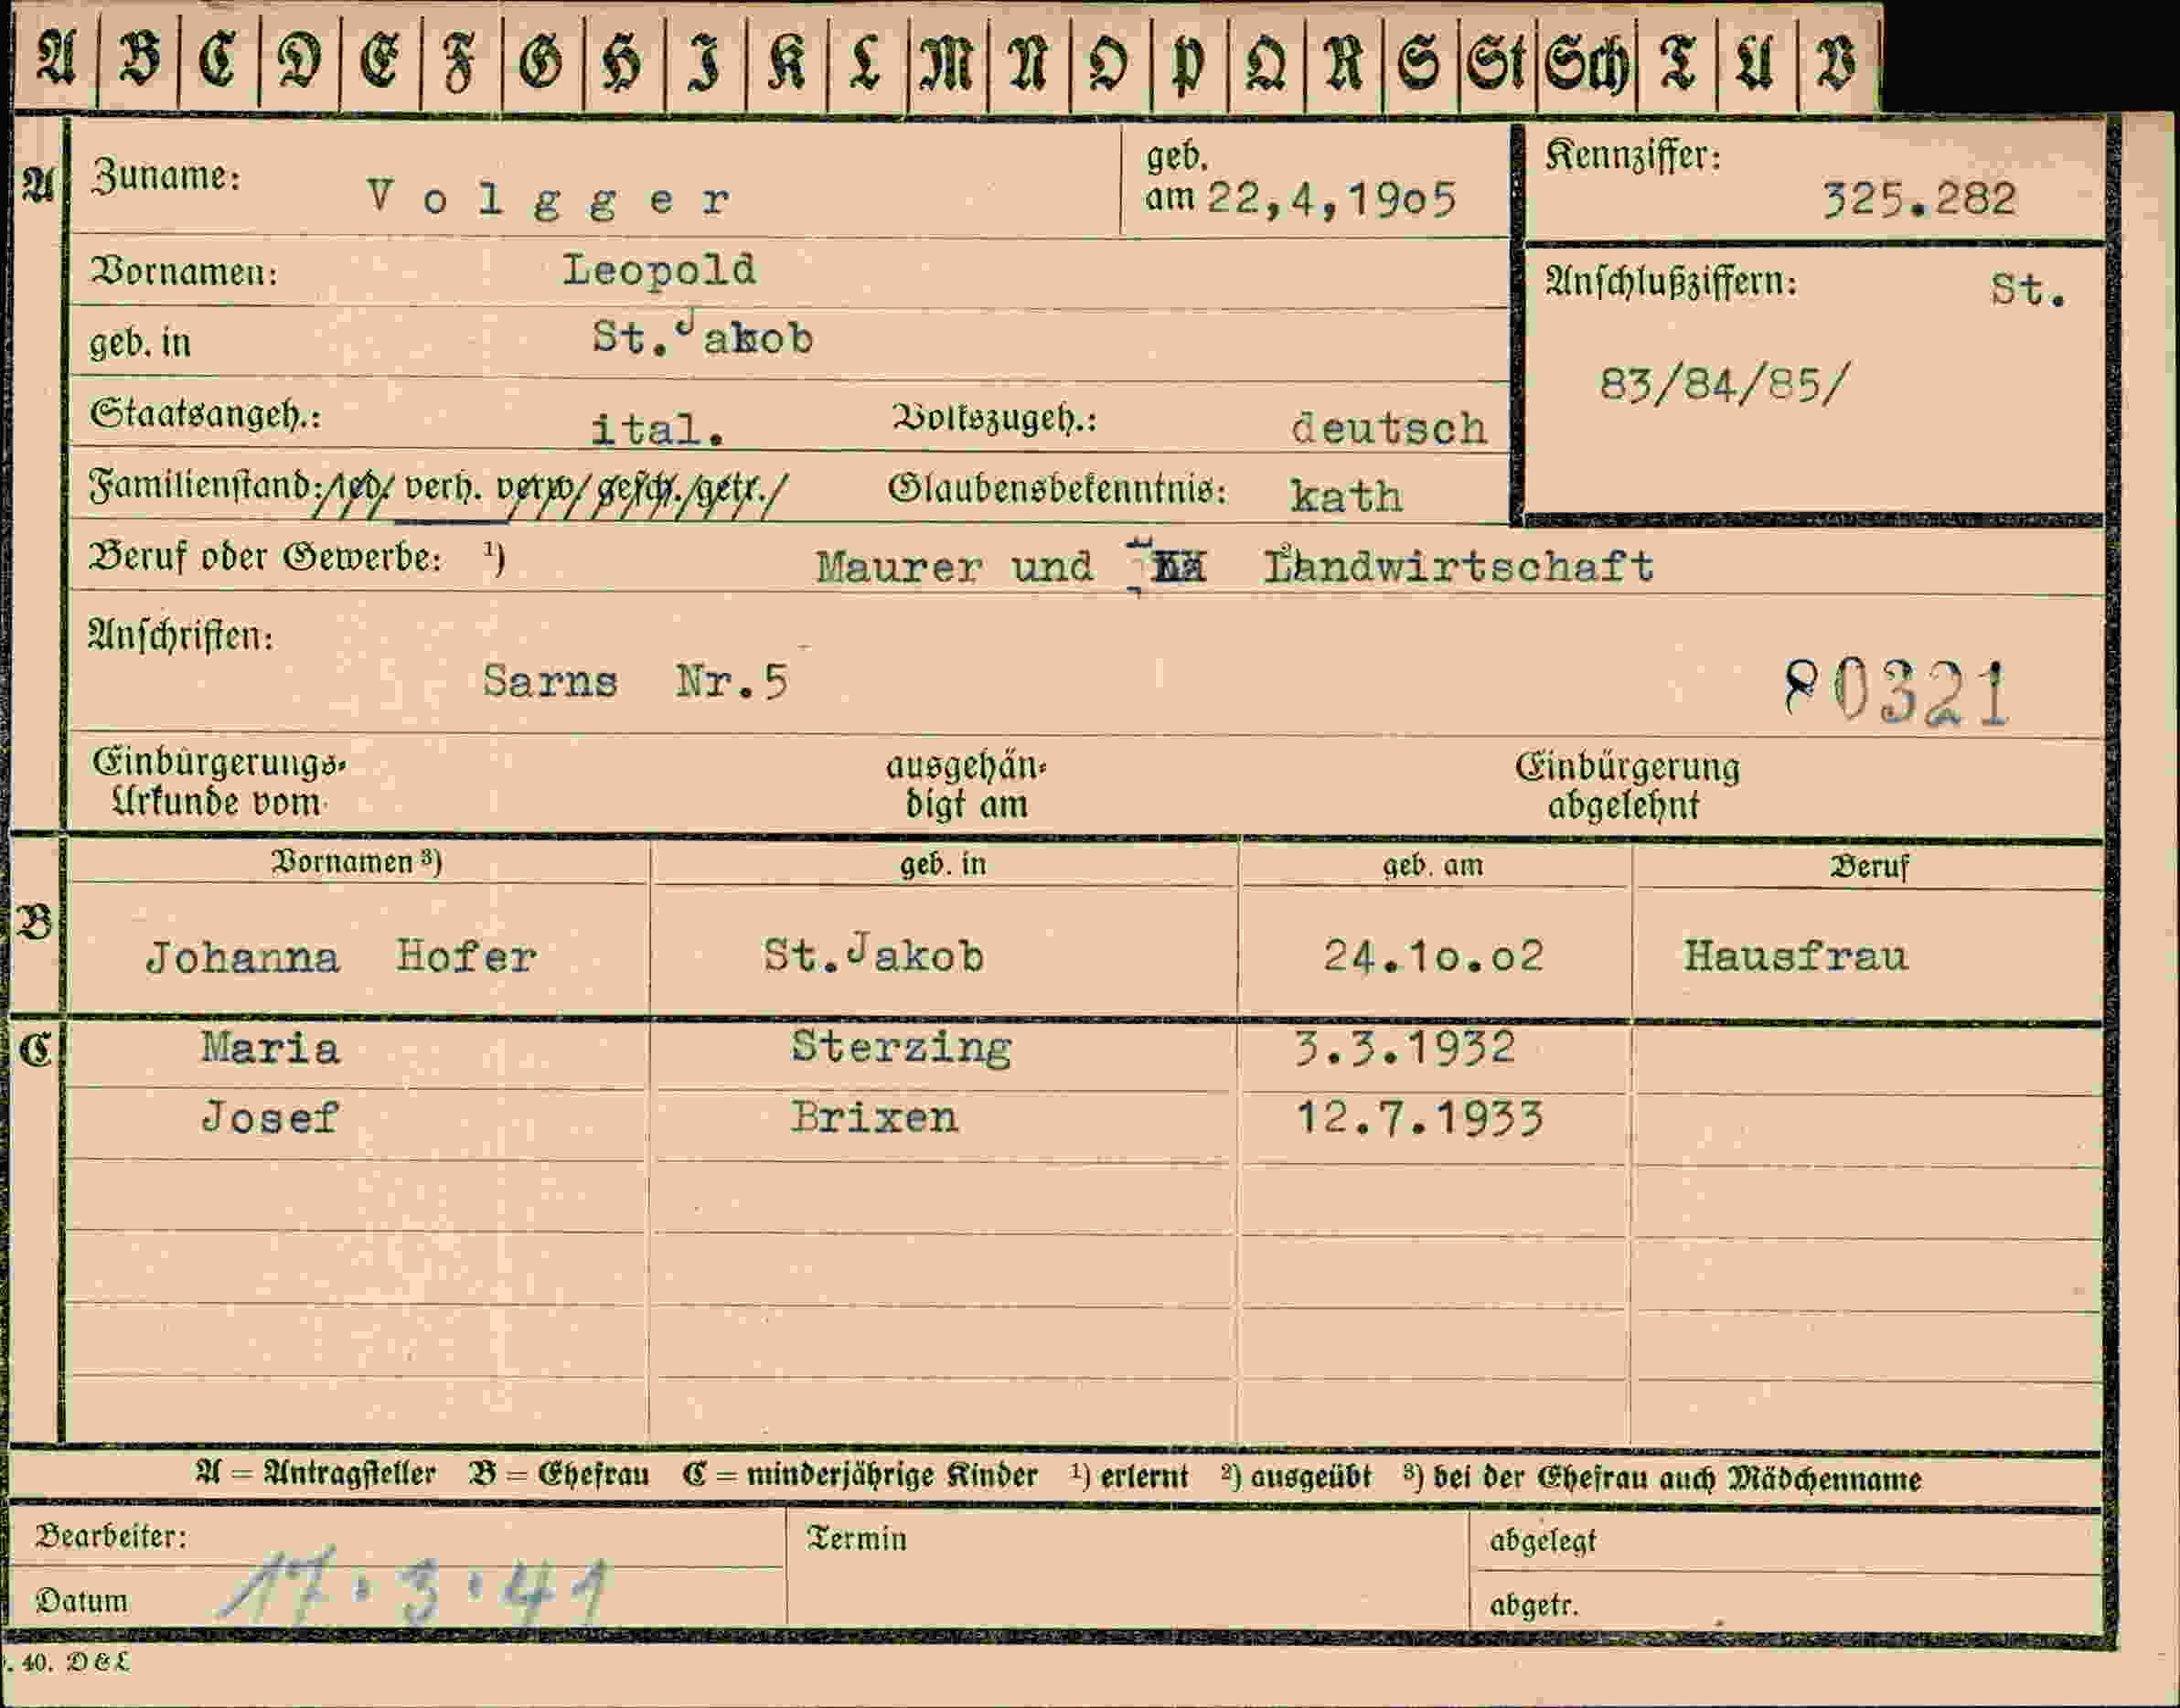 A B C D E F G H I K L M N O P Q R S St Sch T U V
A Zuname: Volgger geb. am 22,4,1905 Kennziffer: 325.282
Vornamen: Leopold
Anschlußziffern: St.
geb. in St.Jakob
83/84/85/
Staatsangeh.: ital. Volkszugeh.: deutsch
Familienstand: led/ verh. verw/ gesch./getr./ Glaubensbekenntnis: kath
Beruf oder Gewerbe: ¹) Maurer und Landwirtschaft
Anschriften:
Sarns Nr.5 80321
Einbürgerungs- ausgehän- Einbürgerung
Urkunde vom digt am abgelehnt
Vornamen ³) geb. in geb. am Beruf
B Johanna Hofer St.Jakob 24.10.02 Hausfrau
C Maria Sterzing 3.3.1932
Josef Brixen 12.7.1933
A = Antragsteller B = Ehefrau C = minderjährige Kinder ¹) erlernt ²) ausgeübt ³) bei der Ehefrau auch Mädchenname
Bearbeiter: Termin abgelegt
Datum 17.3.41 abgetr.
. 40. D&L